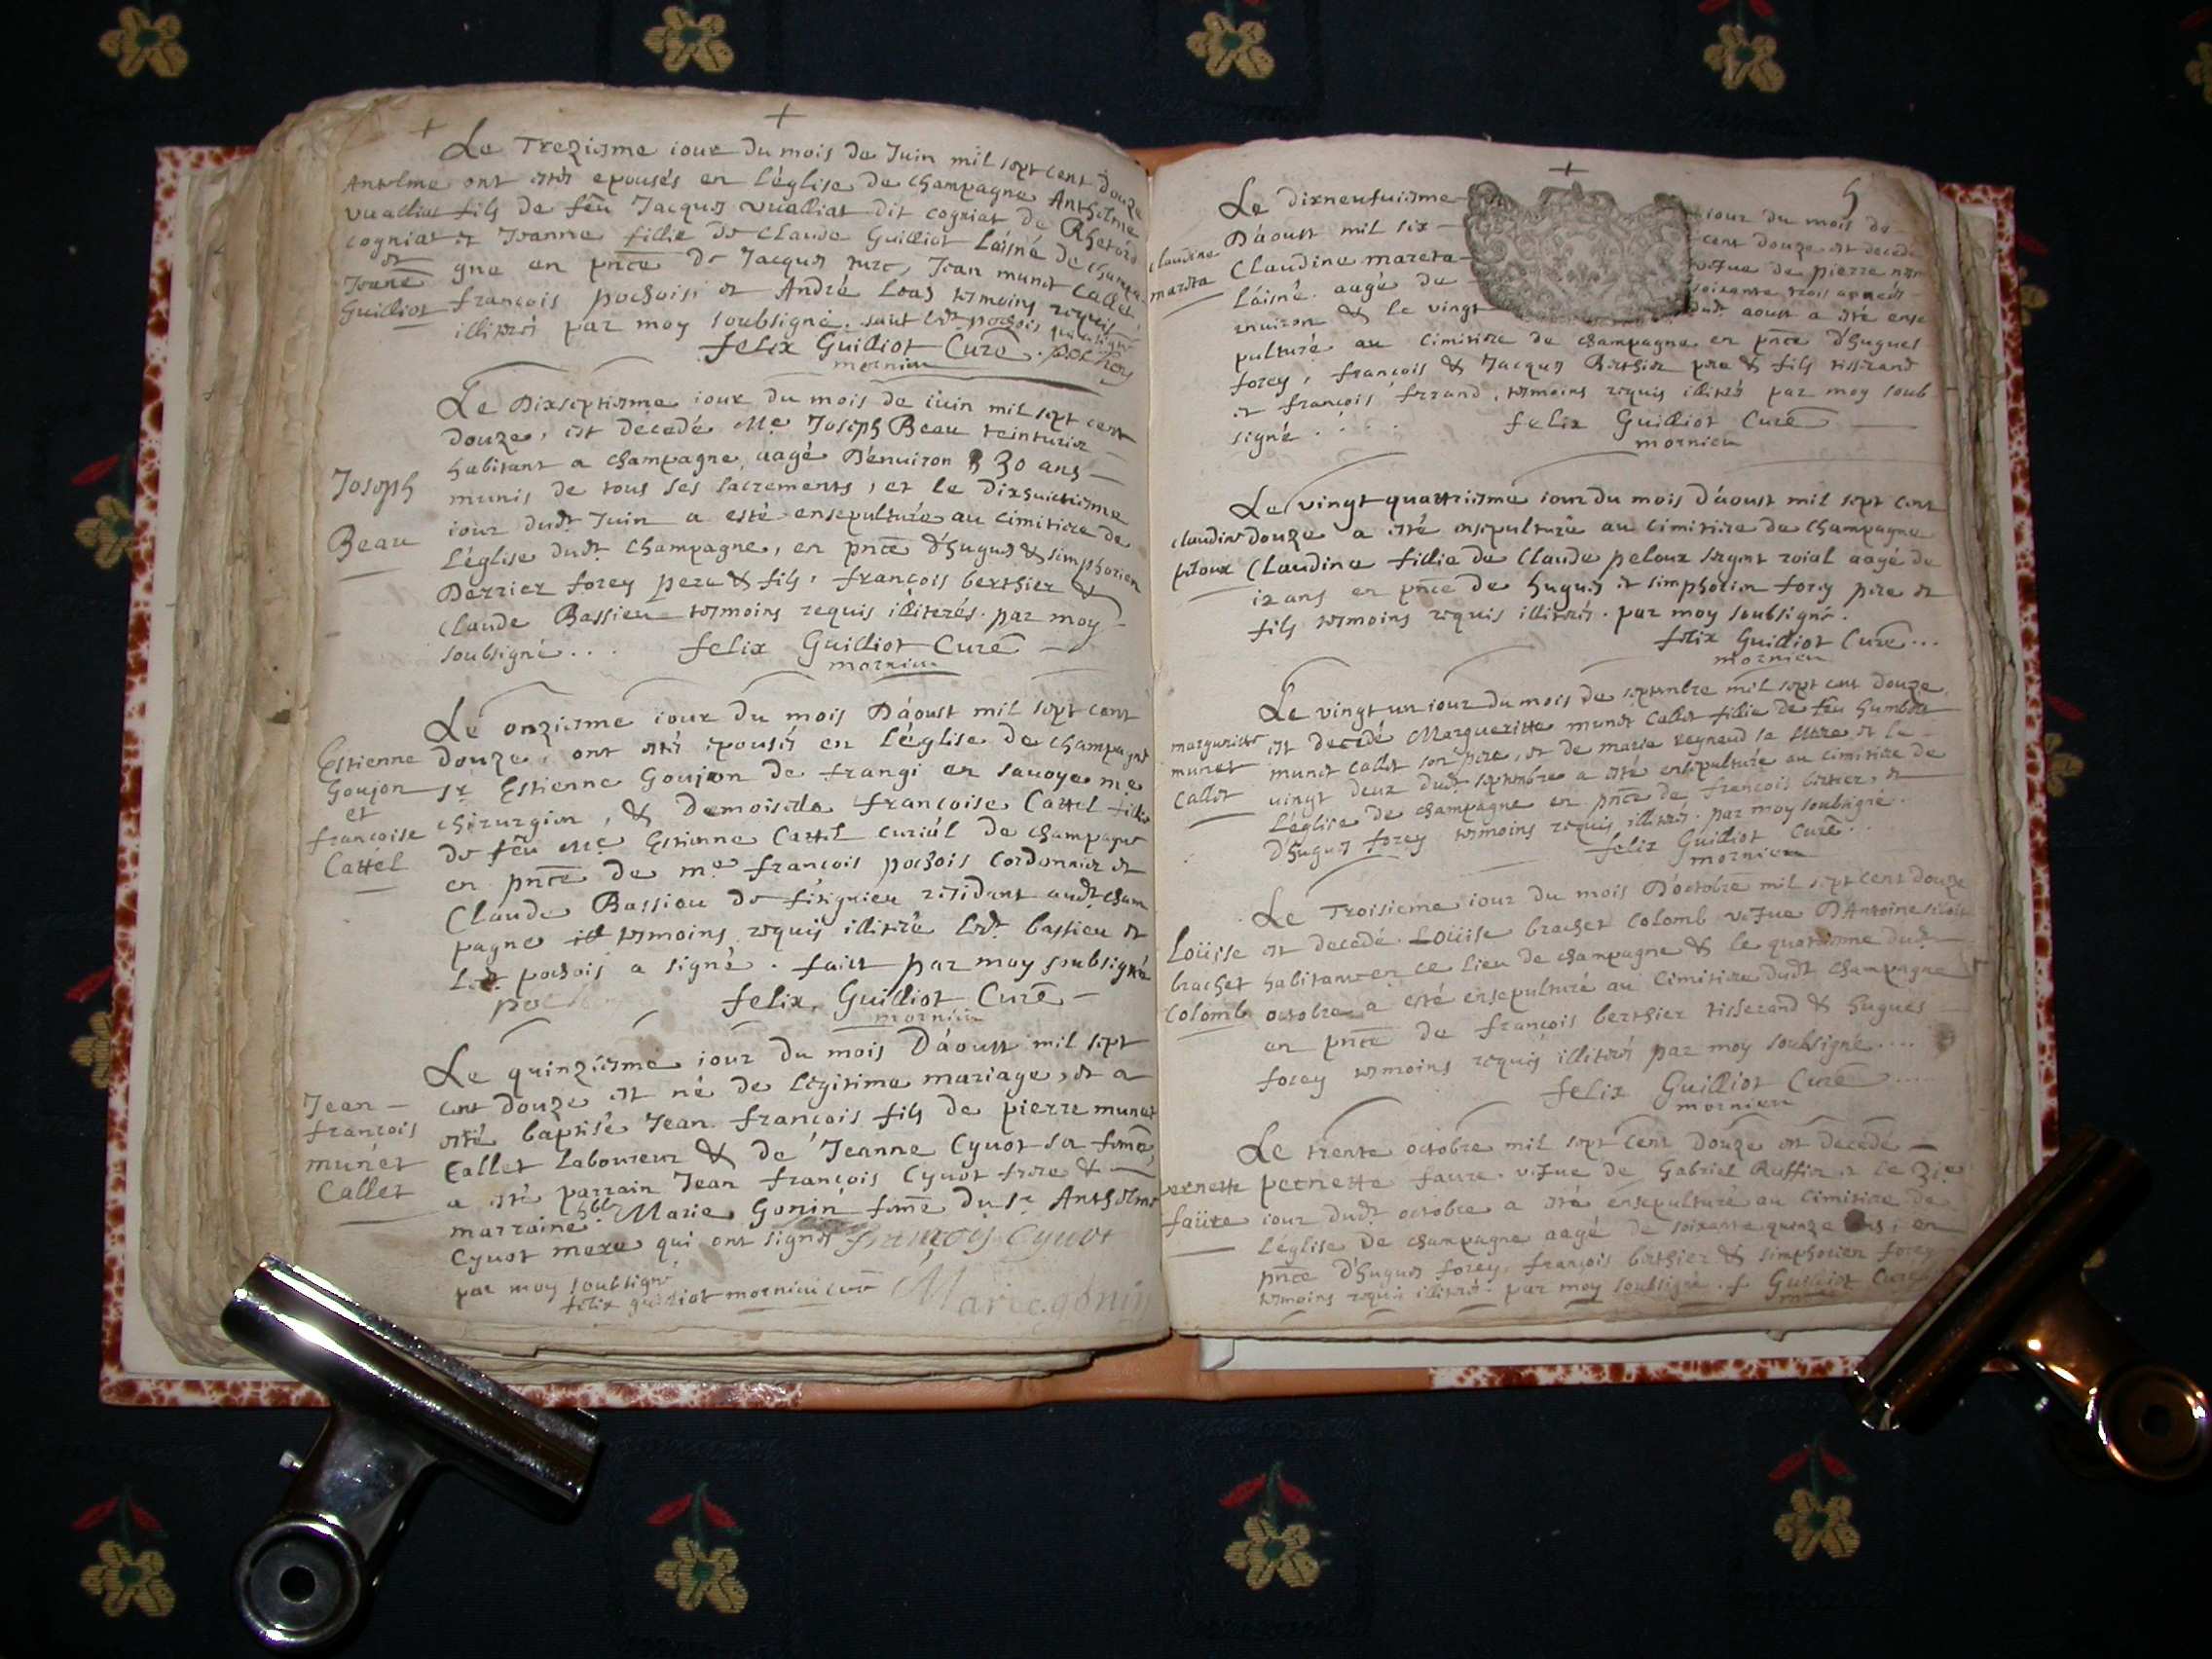 Le Treziesme iour du mois de Juin mil sept cent douze
Antelme ont estés epousés en l'église de champagne Anthelme
vualliat fils de feu Jacques vualliat dit cogniat de
cogniat et Jeanne fillie de Claude Guilliot láisné de champa
et
Jeane gne en pnce de Jacques Jean munet Callet,
Guilliot françois pochois et André tesmoins requis
illiterés par moy soubsigné. sauf ledt pochois
felix Guilliot Curé. pochoy
mornieu
Le Dixseptiesme iour du mois de iuin mil sept cent
douze, est decedé Me Joseph Beau teinturier
habitant a champagne, aagé D'enuiron 30 ans
Joseph munis de tous ses sacrements, et le dixhuictiesme
iour dudt Juin a esté ensepulturé au cimitiere de
Beau l'église dudt Champagne, en pnce d'hugues & simphorien
Derrier forey pere & fils, françois berthier &
Claude Bassieu tesmoins requis illiterés. par moy
soubsigné... felix Guilliot Curé
mornieu
Le onziesme iour du mois D'aoust mil sept cent
Estienne douze, ont estés epousés en l'église de champagne
Goujon sr Estienne Goujon de frangi en sauoye me
et
francoise chirurgien, & demoiselle francoise Cattel fillie
Cattel de feu Me Estienne Cattel curiál de champagne
en pnce de me françois pochois Cordonnier et
Claude Bassieu de residant audt cham
pagne tesmoins requis illiteré ledt bassieu et
ledt pochois a signé. faict par moy soubsigné
felix Guilliot Curé
mornieu
Le quinziesme iour du mois D'aoust mil sept
Jean cent douze est né de legitime mariage, et a
françois esté baptisé Jean françois fils de pierre munet
munet Callet Laboureur & de Jeanne Cyuot sa feme,
Callet a esté parrain Jean françois Cyuot frere &
marraine Marie Gonin feme du sr Anthelme
Cyuot mere qui ont signés françois Cyuot
par moy soubsigné
felix guilliot mornieu curé Marie gonin
5
Le dixneufuiesme iour du mois de
D'aoust mil six cent douze est decedé
claudine Claudine mareta vefue de pierre
mareta láisné aagé de soixante trois années
enuiron & le vingt dudt aoust a esté ense
pulturé au cimitiere de champagne en pnce d'hugues
forey, françois & Jacques Berthier pere & fils tisserand
et françois ferrand, tesmoins requis illiterés par moy soub
signé.... felix Guilliot Curé
mornieu
Le vingt quattriesme iour du mois D'aoust mil sept cent
claudine douze a esté ensepulturé au cimitiere de champagne
peloux Claudine fillie de Claude peloux sergent roial aagé de
ans en pnce de hugues et simphorien forey pere et
fils tesmoins requis illiterés. par moy soubsigné.
felix Guilliot Curé...
mornieu
Le vingt un iour du mois de septembre mil sept cent douze
margueritte est decedé Margueritte munet Callet fillie de feu humbert
munet munet callet son pere, et de marie reynaud sa mere et le
Callet vingt deux dudt septembre a esté ensepulturé au cimitiere de
l'église de champagne en pnce de françois bertier, et
d'hugues forey tesmoins requis illiterés. par moy soubsigné.
felix Guilliot Curé..
mornieu
Le Troisieme iour du mois D'octobre mil sept cent douze
Loüise est decedé Loüise brachet Colomb vefue D'Antoine
brachet habitant en ce lieu de champagne & le quatriesme dudt
Colomb octobre a esté ensepulturé au cimitiere dudt champagne
en pnce de françois berthier tisserand & hugues
forey tesmoins requis illiterés par moy soubsigné....
felix Guilliot Curé....
mornieu
Le trente octobre mil sept cent Douze est decedé
pernette pernette faure vefue de Gabriel Ruffin & le 31e
faüre iour dudt octobre a esté ensepulturé au cimitiere de
l'église de champagne aagé de soixante quinze ans, en
pnce d'hugues forey, françois berthier & simphorien forey
tesmoins requis illiterés. par moy soubsigné. f Guilliot Curé